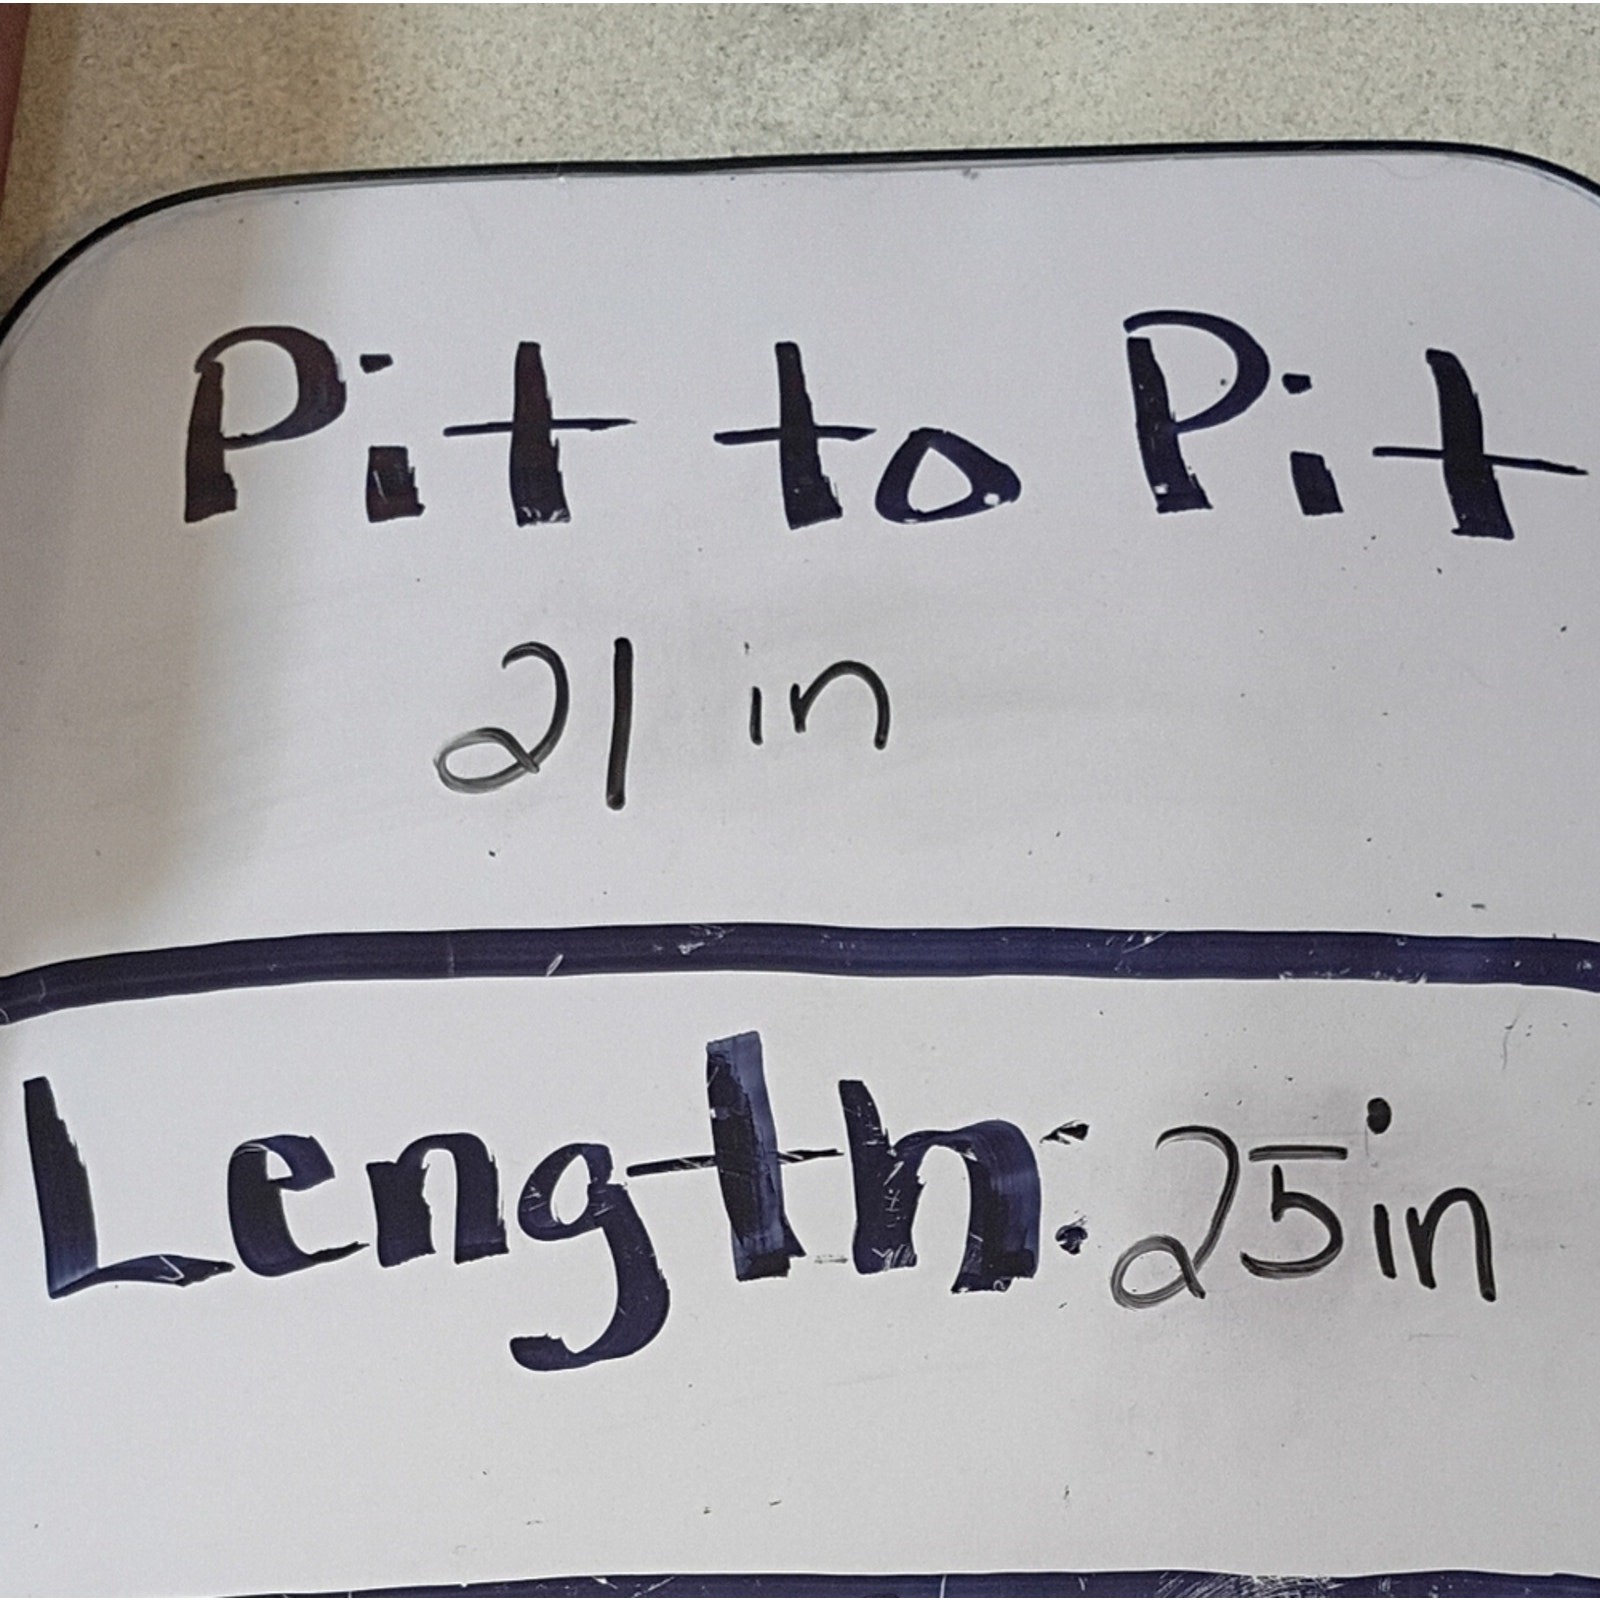 Pit to Pit
21 in
Length: 25 in